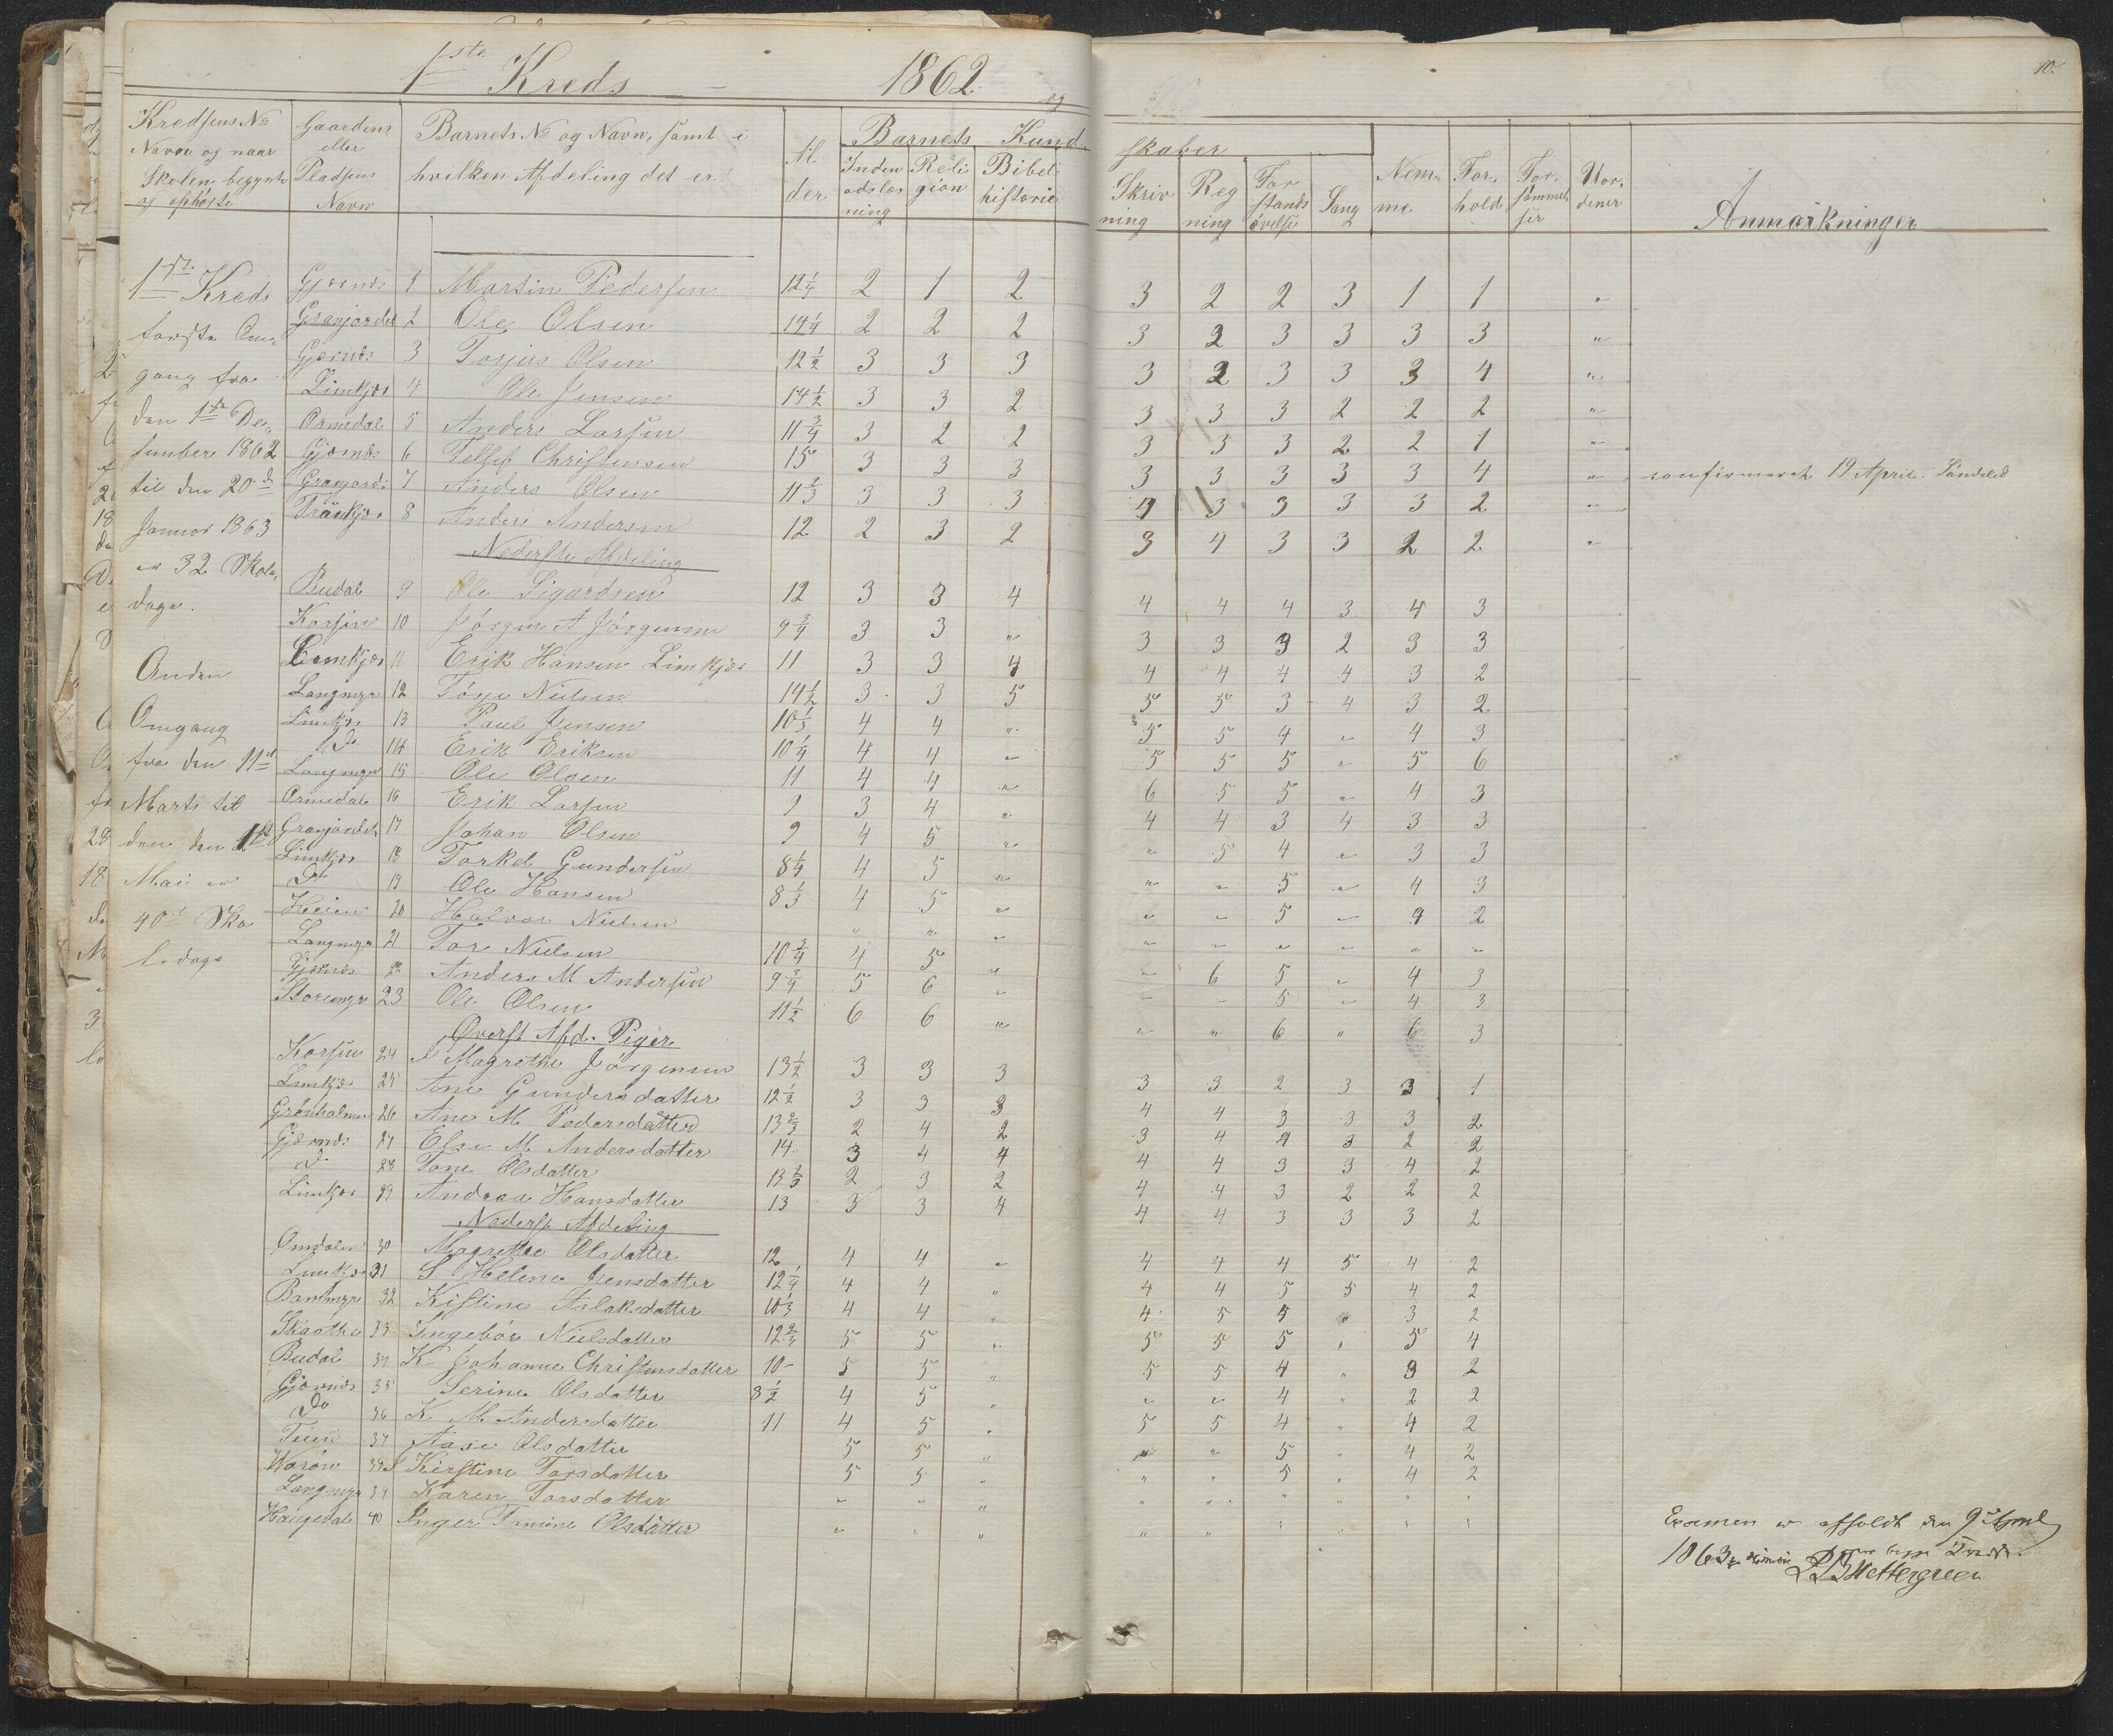 1ste Kreds 1862
10.
Kredsens No Navn og naar Skolen begyndte og ophørte | Gaardens eller Pladsens Navn | Barnets No og Navn, samt i hvilken Afdeling det er | Al der | Barnets Kund skaber | Nem me | For hold | For sømmel ser | Uor dener | Anmærkninger
Inden adslæs ning | Reli gion | Bibel historie | Skriv ning | Reg ning | For stands øvelse | Sang
1ste Kreds
første Om
gang fra
den 1ste De
sember 1862
til den 20de
Januar 1863
er 32 Skole
dage.
Anden
Omgang
fra den 11te
Marts til
den den 1ste
Mai er
40 Sko
ledage
Gjernes 1 Martin Pedersen 12 1/4 2 1 2 3 2 2 3 1 1 "
Granjordet 2 Ole Olsen 14 1/4 2 2 2 3 2 3 3 3 3 "
Gjernes 3 Torjus Olsen 12 1/2 3 3 3 3 2 3 3 3 4 "
Limkjær 4 Ole Jensen 14 1/2 3 3 2 3 3 3 2 2 2 "
Ormedal 5 Anders Larsen 11 3/4 3 2 2 3 3 3 2 2 1 "
Gjernes 6 Tellef Christensen 15 3 3 3 3 3 3 3 3 4 " confirmeret 19 April Søndeled
Granjordet 7 Anders Olsen 11 2/3 3 3 3 3 3 3 3 2 "
8 Anders Andersen 12 2 3 2 3 4 3 3 2 2 "
Nederste Afdeling
Budal 9 Ole Sigardsen 12 3 3 4 4 4 4 3 4 3
10 Jørgen A Jørgensen 9 3/4 3 3 " 3 3 3 2 3 3
Limkjær 11 Erik Hansen Limkjær 11 3 3 4 4 4 4 4 3 2
Langmyr 12 Nielsen 14 1/2 3 3 5 5 5 3 4 3 2
Limkjær 13 Paul Jensen 10 1/3 4 4 " 5 5 4 " 4 3
Do 14 Erik Eriksen 10 1/4 4 4 " 5 5 5 " 5 6
Langmyr 15 Ole Olsen 11 4 4 " 6 5 5 " 4 3
Ormedal 16 Erik Larsen 9 3 4 " 4 4 3 4 3 3
Granjordet 17 Johan Olsen 9 4 5 " " 5 4 " 3 3
Limkjær 18 Torkel Gundersen 8 1/4 4 5 " " " 5 " 4 3
Do 19 Ole Hansen 8 1/3 4 5 " " " 5 " 4 2
Heien 20 Halvor Nielsen " " " " " " " " "
Langmyr 21 Tor Nielsen 10 3/4 4 5 " " 6 5 " 4 3
Gjernes 22 Anders M Andersen 9 3/4 5 6 " " " 5 " 4 3
Storemyr 23 Ole Olsen 11 1/2 6 6 " " " 6 " 6 3
Øverst Afd. Piger
24 Magrethe Jørgensen 13 1/2 3 3 3 3 3 2 3 3 1
Limkjær 25 Ane Gundersdatter 12 1/2 3 3 3 4 4 3 3 3 2
Grønholmen 26 Ane M. Pedersdatter 13 2/3 2 4 2 3 4 4 3 2 2
Gjernes 27 Else M. Andersdatter 14 3 4 4 4 4 3 3 4 2
do 28 Tone Olsdatter 13 2/3 2 3 2 4 4 3 2 2 2
Limkjær 29 Andrea Hansdatter 13 3 3 4 4 4 3 3 3 2
Nederst Afdeling
Omdalen 30 Magrethe Olsdatter 12 4 4 " 4 4 4 5 4 2
Limkjær 31 S. Helene Jensdatter 12 1/4 4 4 " 4 4 5 5 4 2
32 Kistine Aslaksdatter 10 1/3 4 4 " 4 5 4 " 3 2
33 Ingebør Nielsdatter 12 2/3 5 5 " 5 5 5 " 5 4
Budal 34 K Johanne Christensdatter 10 5 5 " 5 5 4 " 3 2
Gjernes 35 Serine Olsdatter 8 1/2 4 5 " " " 4 " 2 2
Do 36 K. M. Andersdatter 11 4 5 " 5 5 4 " 4 2
37 Aase Olsdatter 5 5 " " " 5 " 4 2
38 Kirstine Torsdatter 5 5 " " " 5 " 4 2
Langmyr 39 Karen Torsdatter " " " " " " " " "
Haugedal 40 Inger Tomine Olsdatter " " " " " " " " "
Examen er afholdt den 9de April
1863
Wettergreen